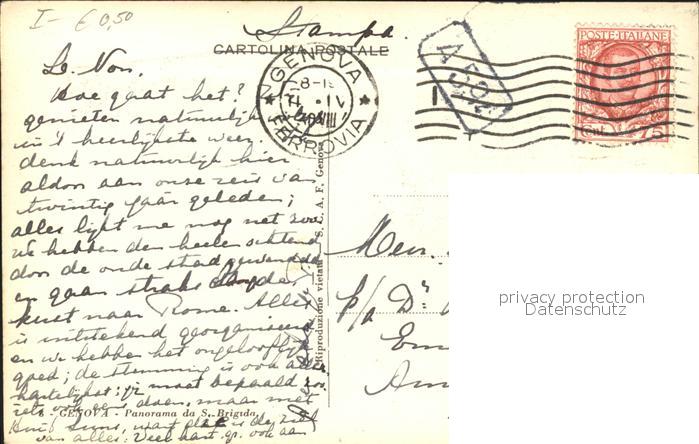 I - € 0,50
Stampa.
CARTOLINA POSTALE
GENOVA
FERROVIA
POSTE ITALIANE
75
Hoe gaat het?
genieten natuurlijk
in 't heerlijkste weer.
denk natuurlijk hier
aldoor aan onze reis van
twintig jaar geleden;
alles lijkt me nog net zoo.
we hebben den heelen ochtend
door de oude stad gewandeld
en gaan straks langs de
kust naar Rome. Alles
is uitstekend georganiseerd
en we hebben het ongelooflijk
goed; de stemming is ook aller
hartelijkst: je moet bepaald zoo
iets ook eens doen, maar met
want dat is de ziel
van alles! Veel hart. gr. ook aan
GENOVA - Panorama da S. Brigida.
Riproduzione vietata S. L. A. F. Genova
Mevr.
p/a Dr.
Am
privacy protection
Datenschutz